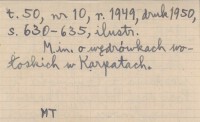 t. 50, nr 10, r. 1949, druk 1950,
s. 630-635, ilustr.
M.in. o wędrówkach wo-
łoskich w Karpatach.
MT